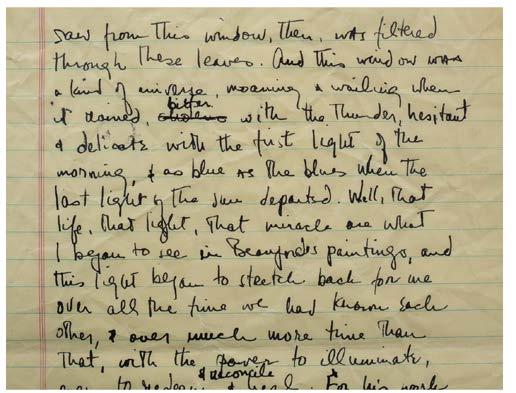 saw from this window, then, was filtered
through these leaves. And this window was
a kind of universe, moaning & wailing when
it rained, bitter with the thunder, hesitant
& delicate with the first light of the
morning, & as blue as the blues when the
last light of the sun departed. Well, that
life, that light, that miracle are what
I began to see in Beauford's paintings, and
this light began to stretch back for me
over all the time we had known each
other, & over much more time than
that, with the power to illuminate,
& reconcile
even to redeem & heal. For his work